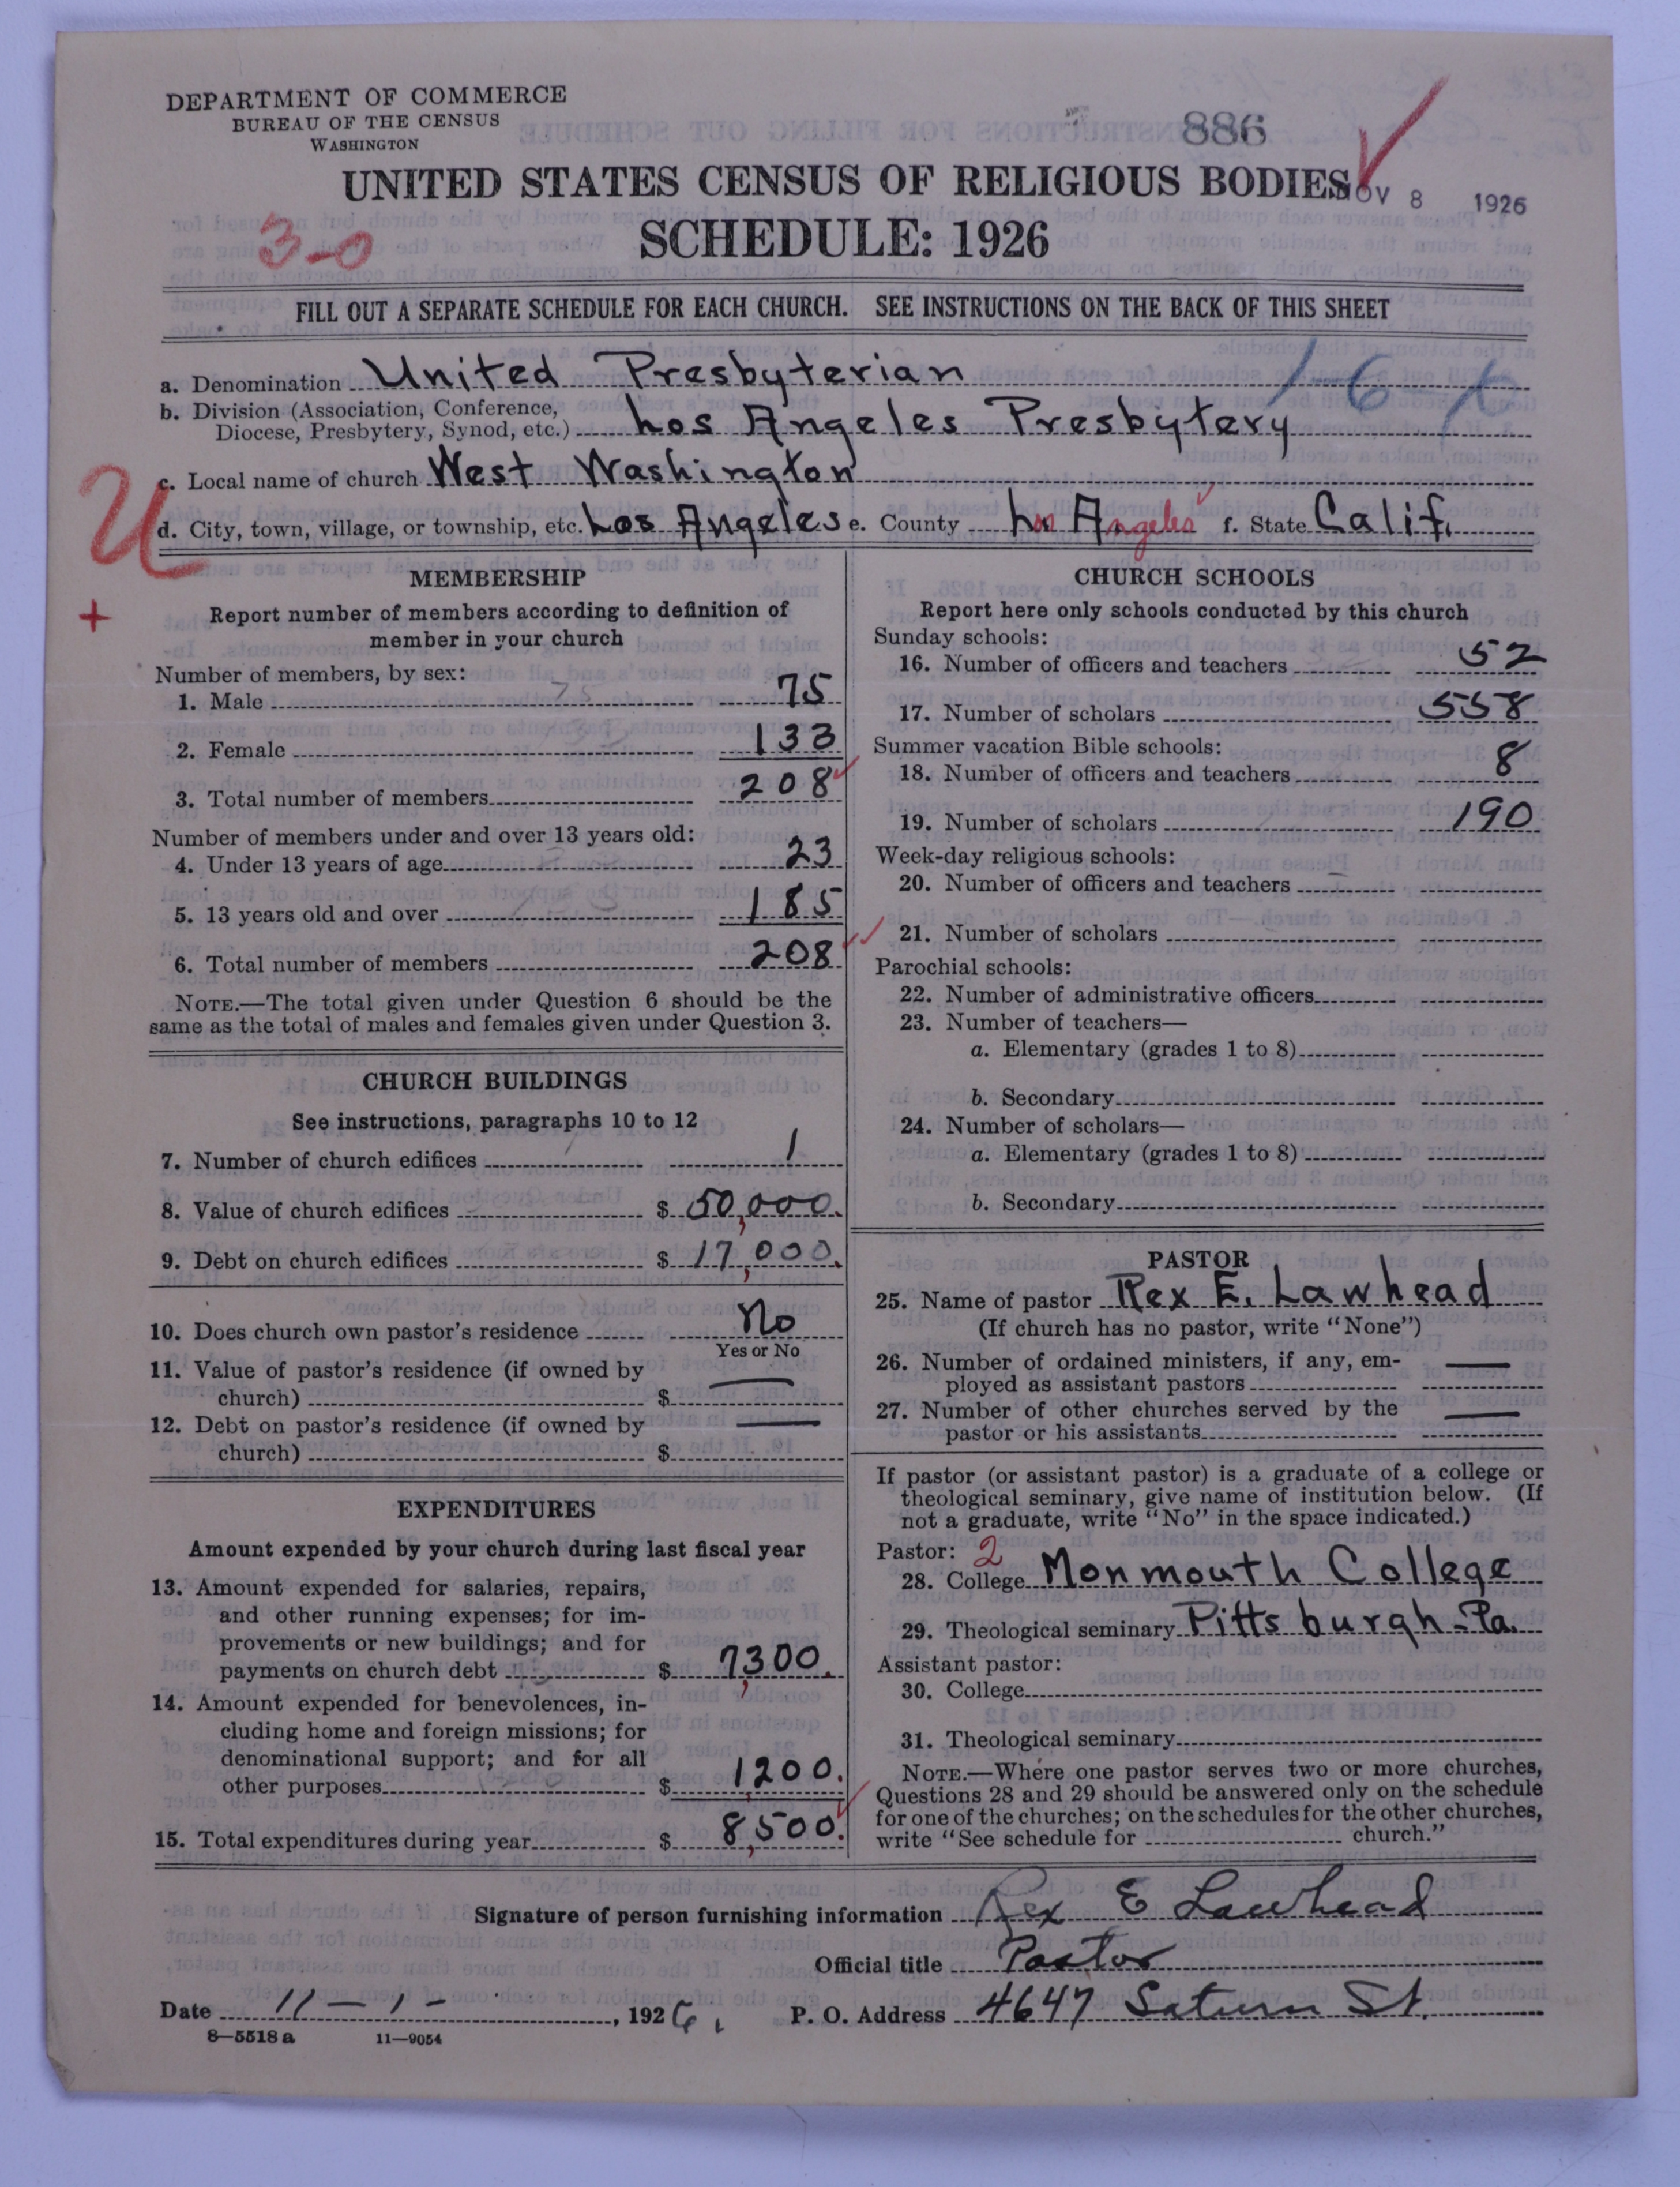 DEPARTMENT OF COMMERCE
BUREAU OF THE CENSUS
WASHINGTON
886
UNITED STATES CENSUS OF RELIGIOUS BODIES
NOV 8 1926
SCHEDULE: 1926
3-0
FILL OUT A SEPARATE SCHEDULE FOR EACH CHURCH. SEE INSTRUCTIONS ON THE BACK OF THIS SHEET
a. Denomination United Presbyterian
b. Division (Association, Conference,
Diocese, Presbytery, Synod, etc.) Los Angeles Presbytery
c. Local name of church West Washington
d. City, town, village, or township, etc. Los Angeles e. County Los Angeles f. State Calif.
U
+
MEMBERSHIP
Report number of members according to definition of
member in your church
Number of members, by sex:
1. Male 75
2. Female 133
3. Total number of members 208
Number of members under and over 13 years old:
4. Under 13 years of age 23
5. 13 years old and over 185
6. Total number of members 208
NOTE.—The total given under Question 6 should be the
same as the total of males and females given under Question 3.
CHURCH BUILDINGS
See instructions, paragraphs 10 to 12
7. Number of church edifices 1
8. Value of church edifices $ 50,000.
9. Debt on church edifices $ 17,000.
10. Does church own pastor's residence No
Yes or No
11. Value of pastor's residence (if owned by
church) $ —
12. Debt on pastor's residence (if owned by
church) $ —
EXPENDITURES
Amount expended by your church during last fiscal year
13. Amount expended for salaries, repairs,
and other running expenses; for im-
provements or new buildings; and for
payments on church debt $ 7,300.
14. Amount expended for benevolences, in-
cluding home and foreign missions; for
denominational support; and for all
other purposes $ 1,200.
15. Total expenditures during year $ 8,500.
CHURCH SCHOOLS
Report here only schools conducted by this church
Sunday schools:
16. Number of officers and teachers 52
17. Number of scholars 558
Summer vacation Bible schools:
18. Number of officers and teachers 8
19. Number of scholars 190
Week-day religious schools:
20. Number of officers and teachers
21. Number of scholars
Parochial schools:
22. Number of administrative officers
23. Number of teachers—
a. Elementary (grades 1 to 8)
b. Secondary
24. Number of scholars—
a. Elementary (grades 1 to 8)
b. Secondary
PASTOR
25. Name of pastor Rex E. Lawhead
(If church has no pastor, write "None")
26. Number of ordained ministers, if any, em-
ployed as assistant pastors —
27. Number of other churches served by the
pastor or his assistants —
If pastor (or assistant pastor) is a graduate of a college or
theological seminary, give name of institution below. (If
not a graduate, write "No" in the space indicated.)
Pastor: 2
28. College Monmouth College
29. Theological seminary Pittsburgh-Pa.
Assistant pastor:
30. College
31. Theological seminary
NOTE.—Where one pastor serves two or more churches,
Questions 28 and 29 should be answered only on the schedule
for one of the churches; on the schedules for the other churches,
write "See schedule for church."
Signature of person furnishing information Rex E Lawhead
Official title Pastor
Date 11-1-, 1926. P. O. Address 4647 Saturn St.
8-5518 a 11-9054